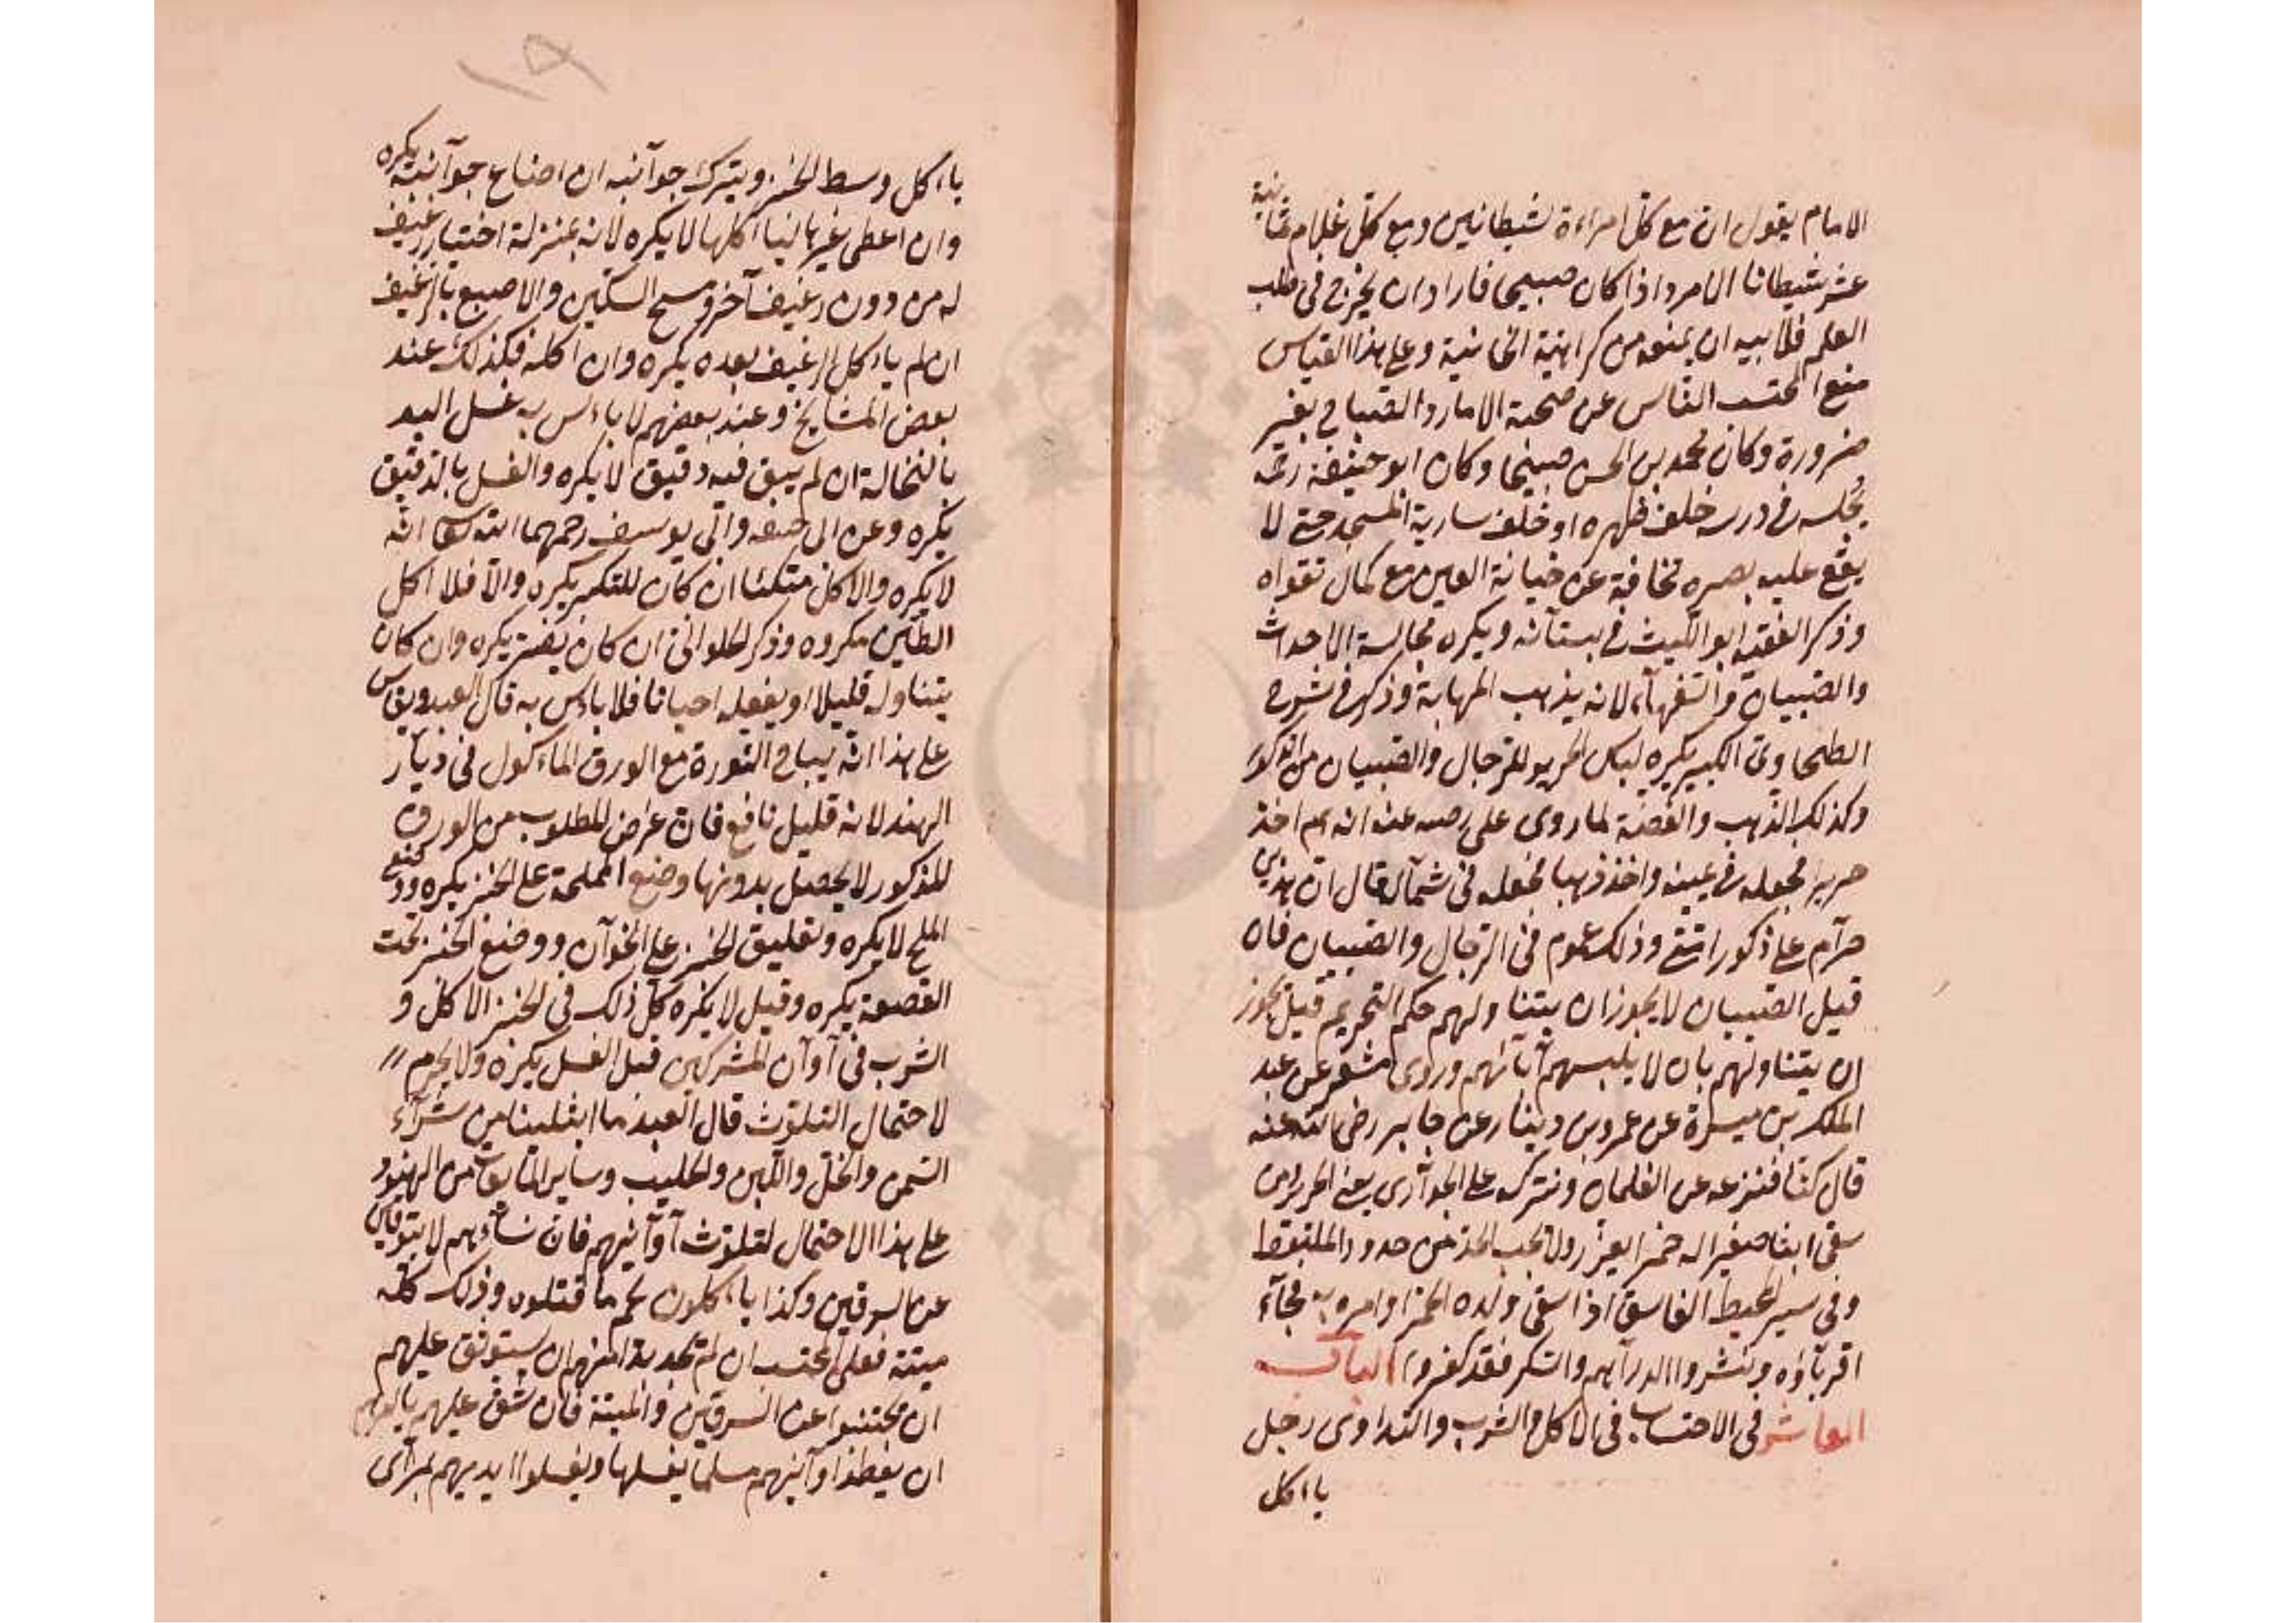 الامام يقول ان مع كل امراءة شيطانين ومع كل غلام ثمانية
عشر شيطانا الامرد اذا كان صبيحا فاراد ان يخرج فى طلب
العلم فلابيه ان يمنعه من كراهية الخانية وعلى هذا القياس
منع المحتسب الناس عن صحبة الامارد الصباح بغير
ضرورة وكان محمد بن الحسن صبيحا وكان ابو حنيفة رحمه
يجلسه فى درسه خلف ظهره او خلف سارية المسجد حتى لا
يقع عليه بصره مخافة عن خيانة العين مع كمال تقواه
وذكر الفقيه ابو الليث فى بستانه ويكره مجالسة الاحداث
والصبيان والسفهآء لانه يذهب المهابة وذكر فى شرح
الطحاوى الكبير يكره لبس الحرير للرجال والصبيان من الذكور
وكذلك الذهب والفضة لما روى على رضى عنه انه عم اخذ
حريرا فجعله فى يمينه واخذ ذهبا فجعله فى شماله قال ان هذين
حرآم على ذكور امتى وذلك عموم فى الرجال والصبيان فان
قيل الصبيان لا يجوز ان يتناولهم حكم التحريم قيل يجوز
ان يتناولهم بان لا يلبسهم آباؤهم وروى مشعر عن عبد
الملك بن ميسرة عن عمرو بن دينار عن جابر رضى الله عنه
قال كنا فننزعه عن الغلمان ونتركه على الجوآرى يعنى الحرير امن
سقى ابنا صغيرا له خمرا يعزر ولا يجب الحد من حدود الملتقط
وفى سير المحيط الفاسق اذا سقى ولده الخمر اوامره به فجآء
اقربآؤه ونثروا الدرآهم والسكر فقد كفروا الباب
العاشر فى الاحتساب فى الاكل والشرب والتداوى رجل
يااكل
يااكل وسط الخبز ويترك جوآنبه ان اضاع جوآنبه يكره
وان اعطى غيرها ليااكلها لا يكره لانه بمنزلة اختيار رغيف
له من دون رغيف آخر ومسح السكين والاصبع بالرغيف
ان لم يااكل الرغيف بعده يكره وان اكله فكذلك عند
بعض المشايخ وعند بعضهم لا باءس به غسل اليد
بالنخالة ان لم يبق فيه دقيق لا يكره والغسل بالدقيق
يكره وعن ابى حنيفه وابى يوسف رحمهما الله انه
لا يكره والاكل متكئا ان كان للتكبر يكره والا فلا اكل
الطين مكروه وذكر الحلوانى ان كان يضر يكره وان كان
يتناوله قليلا او يفعله احيانا فلا باءس به قال العبد ويقاس
على هذا انه يباح النورة مع الورق الماءكول فى ديار
الهند لانه قليل نافع فان غرض المطلوب من الورق
المذكور لا يحصل بدونها وضع المملحة على الخبز يكره ووضع
الملح لا يكره وتعليق الخبز على الخوآن ووضع الخبز تحت
القصعة يكره وقيل لا يكره كل ذلك فى الخبز الاكل و
الشرب فى آوآن المشركين قبل الغسل يكره ولا يحرم
لاحتمال التلوث قال العبد ما ابتلينا من شرآء
السمن والخل واللبن والحليب وساير المايعات من الهنود
على هذا الاحتمال لتلوث آوآنيهم فان نساءهم لا يتوقين
عن السرقين وكذا ياءكلون لحم ما قتلوه وذلك كله
ميتة فعلى المحتسب ان لم تجد بدا منهم ان يستوثق عليهم
ان يجتنبوا عن السرقين والميتة فان شق عليهم يامرهم
ان يعطوا اوآنيهم مسلما يغسلها ويغسلوا ايديهم بمرآى